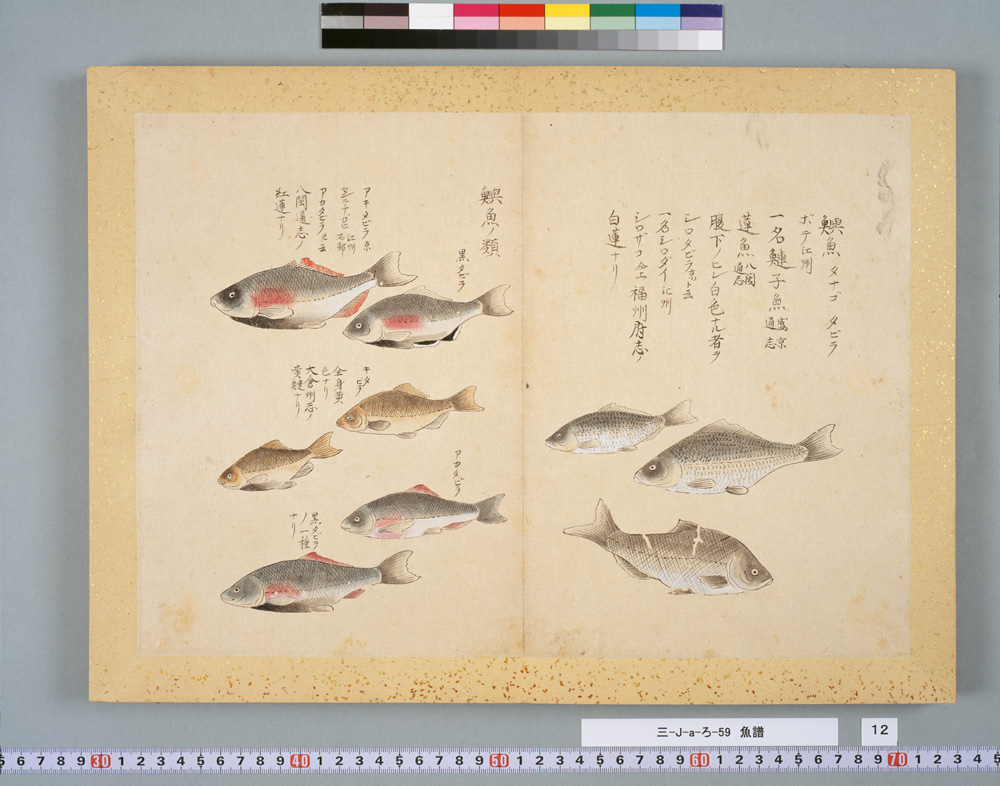 鱮魚 タナゴ タビラ
ボテ江州
一名鰱子魚 盛京通志
蓮魚 八閩通志
腹下ノヒレ白色ナル者ヲ
シロタビラ
一名シロダイ 江州
シロザコ 仝上 福州府志ノ
白蓮ナリ
鱮魚ノ類
黒タビラ
アキタビラ 京
江州
アカタビラ
八閩通志ノ
紅蓮ナリ
キタビラ
全身黄
色ナリ
大倉州志ノ
黄鰱ナリ
アカタビラ
黒タビラ
ノ一種
ナリ
三-J-a-ろ-59 魚譜
12
5 6 7 8 9 30 1 2 3 4 5 6 7 8 9 40 1 2 3 4 5 6 7 8 9 50 1 2 3 4 5 6 7 8 9 60 1 2 3 4 5 6 7 8 9 70 1 2 3 4 5